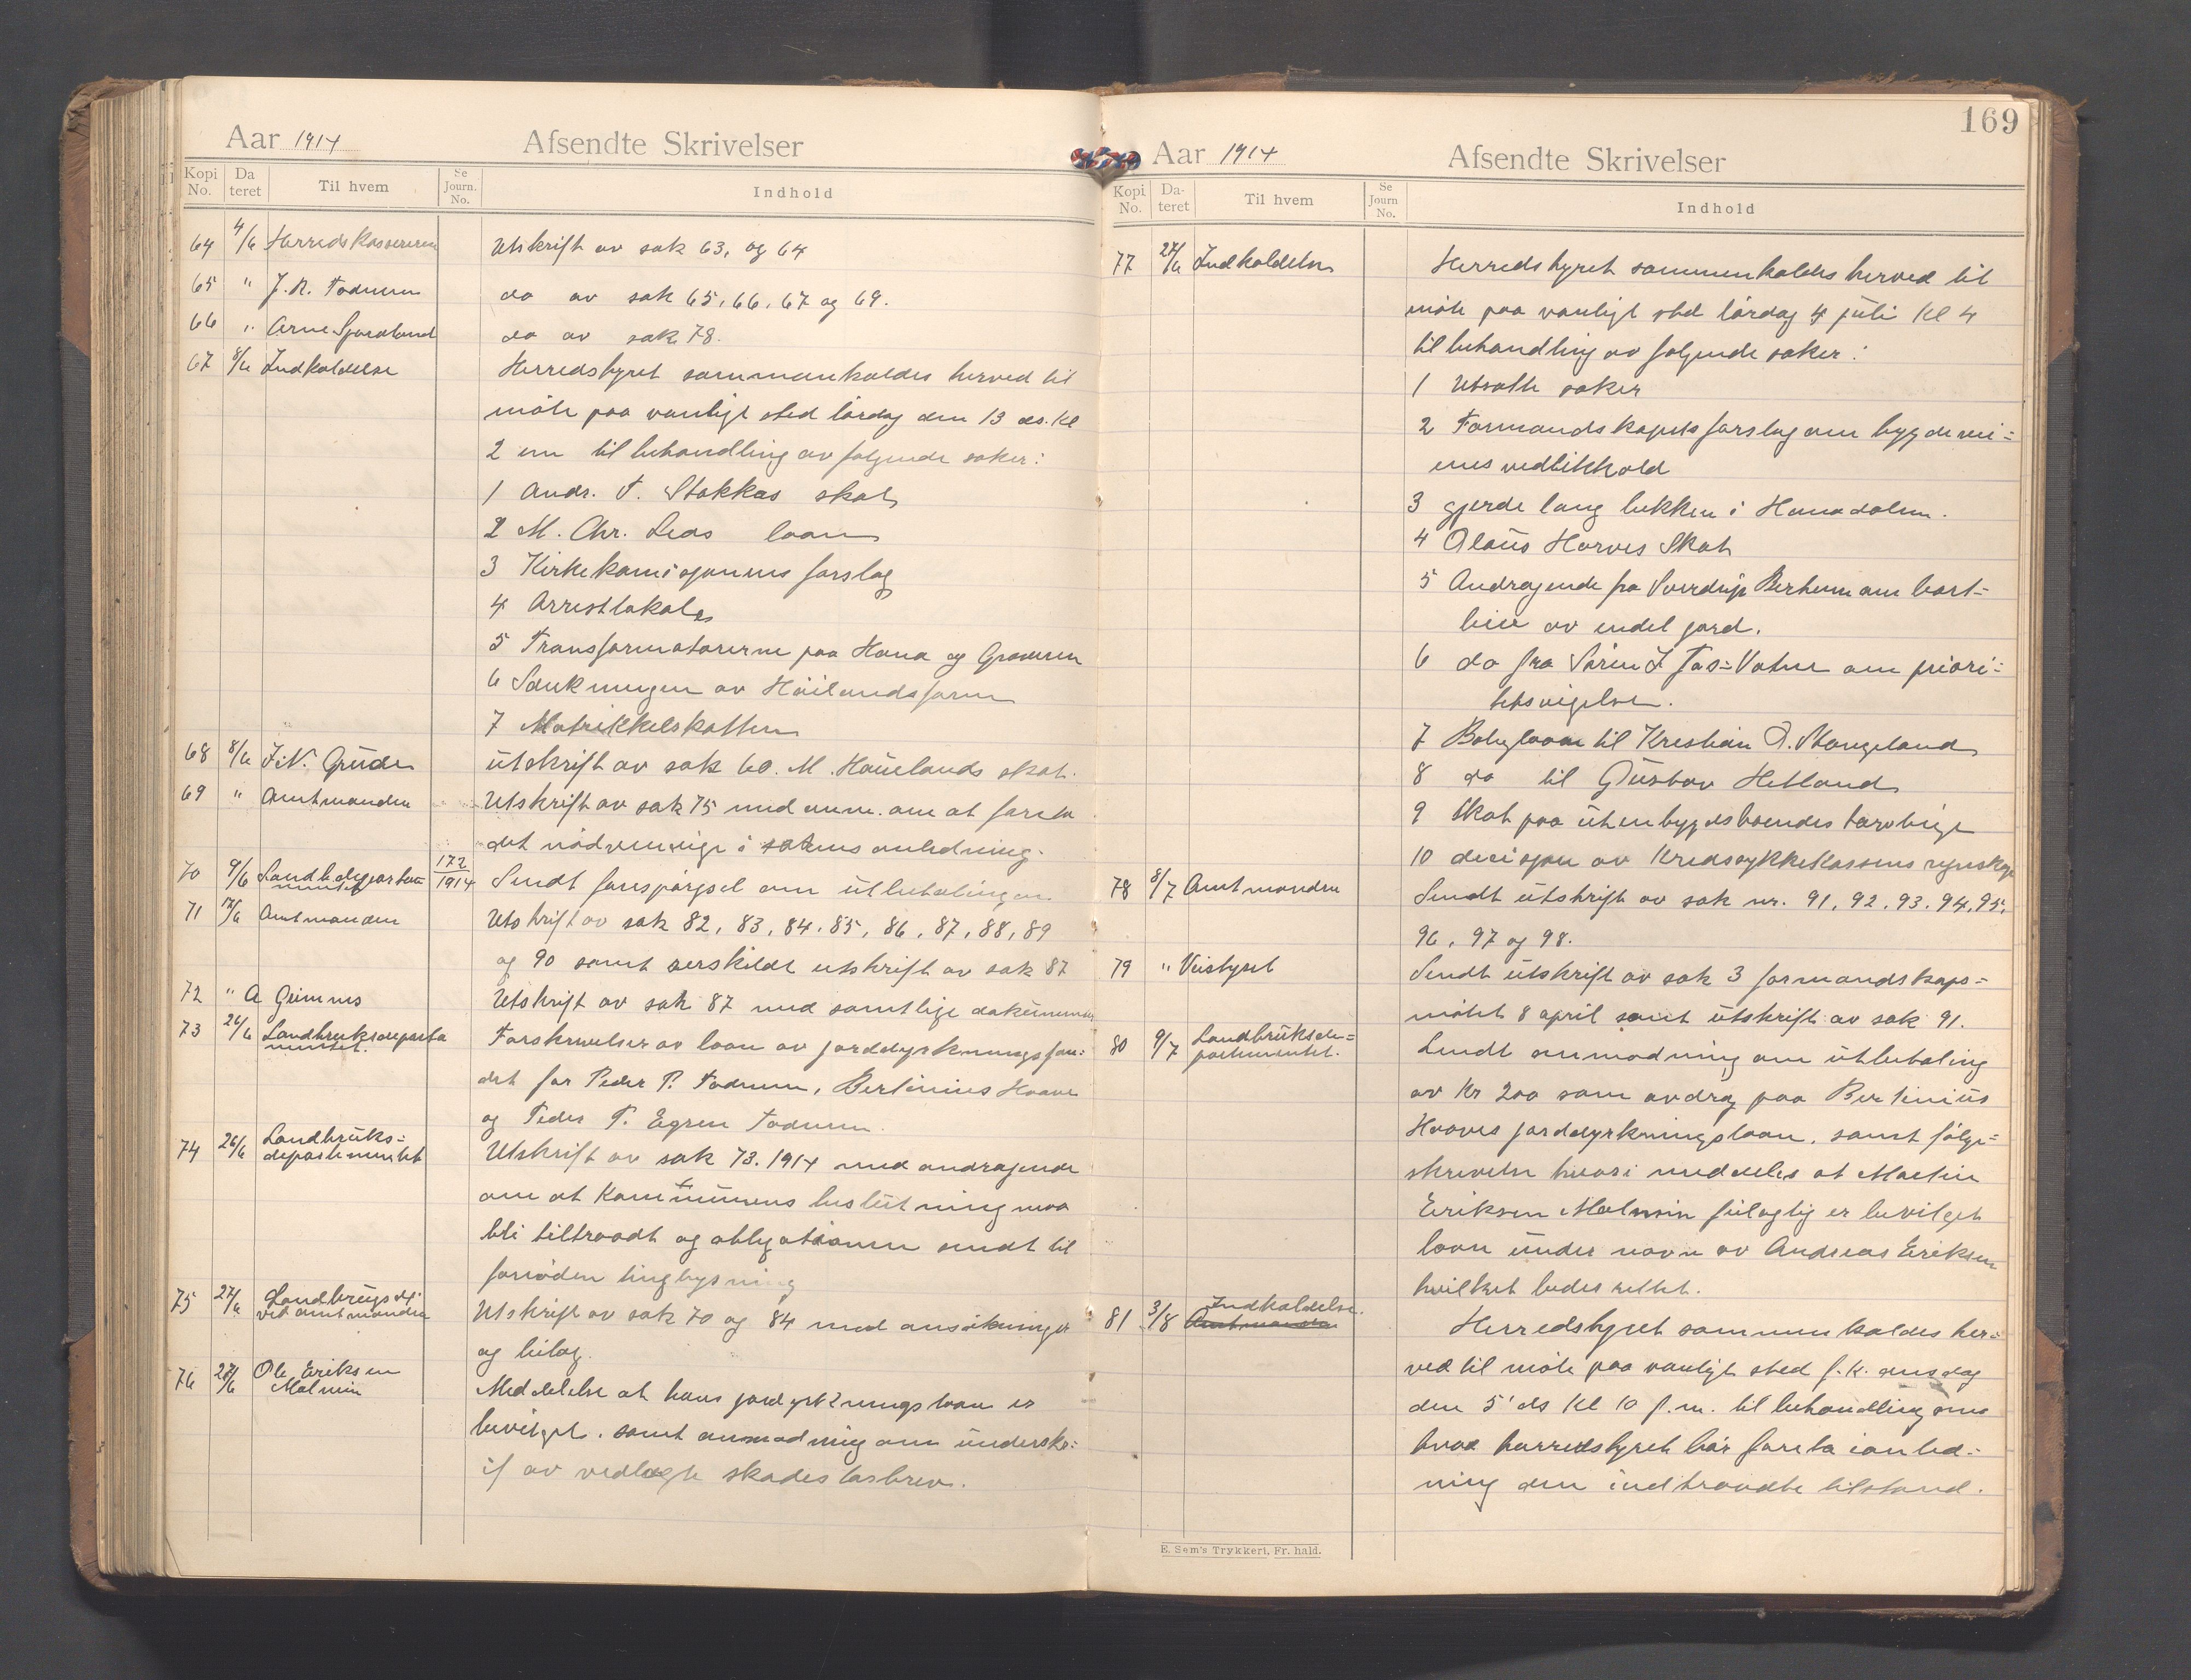 Aar 1914 Afsendte Skrivelser
Kopi No. Da teret Til hvem Se Journ. No. Indhold
64 4/6 Herredskassereren Utskrift av sak 63, og 64
65 " J. N. Todnem do av sak 65, 66, 67 og 69.
66 " Arne do av sak 78.
67 8/6 Indkaldelse Herredstyret sammankaldes herved til
møte paa vanligt sted lördag den 13 ds. Kl
2 em til behandling av følgende saker:
1 Andr. T. Stokkas skat
2 M. Chr. Leas laan
3 Kirkekomisjonens forslag
4 Arrestlokale
5 Transformatorerne paa Hana og Graveren
6 Sænkningen av
7 Matrikkelskatten
68 8/6 J. N. Grude utskrift av sak 60. M. Hauelands skat.
69 " Amtmanden Utskrift av sak 75 med anm. om at foreta
det nödvendige i sakens anledning.
70 9/6 Landb.departementet 172/1914 Sendt forespörgsel om utbetalingen
71 17/6 Amtmanden Utskrift av sak 82, 83, 84, 85, 86, 87, 88, 89
og 90 samt serskildt utskrift av sak 87
72 " A Grimnes Utskrift av sak 87 med samtlige dokumenter
73 26/6 Landbruksdeparta
mentet. Forskrivelser av laan av jorddyrkningsfon=
det for Peder P. Todnem, Bertinius Haave
og Peder T. Egren Todnem.
74 26/6 Landbruks=
departementet Utskrift av sak 73. 1914 med andragende
om at Kommunens beslutning maa
bli tiltraadt og obligationen sendt til
foruöden tinglysning
75 27/6 Landbrugsdep.
ved amtmanden Utskrift av sak 70 og 84 med ansökninger
og bilag.
76 27/6 Ole Eriksen
Malmin Meddelelse at hans jordyrkningslaan er
bevilget. samt anmodning om undersk=
if av vedlagte skadeslosbrev.
169
Aar 1914 Afsendte Skrivelser
Kopi No. Da- teret Til hvem Se Journ No. Indhold
77 27/6 Indkaldelse Herredstyret sammenkaldes herved til
møte paa vanligt sted lördag 4 juli Kl 4
til behandling av følgende saker:
1 Utsatte saker
2 Formandskapets forslag om bygdevei=
enes vedlikkhold
3 gjerde lang bekken i Hanadalen.
4 Olaus Horves Skat
5 Andragende fra Sverdrup Berheim om bort=
leie av endel jord.
6 do fra Sören J. Jas=Vatne om priori=
tetsvigelse.
7 Boliglaan til Kristian O. Stangeland
8 do til Gustav Hetland
9 Skat paa utenbygdsboendes torvleige
10 decisjon av Kredssykkekassens regnskap
78 8/7 Amtmanden Sendt utskrift av sak nr. 91, 92, 93. 94, 95,
96, 97 og 98.
79 " Veistyret Sendt utskrift av sak 3 formandskaps=
mötet 8 april samt utskrift av sak 91.
80 9/7 Landbruksde=
partementet. Sendt anmodning om utbetaling
av Kr 200 som avdrag paa Bertinius
Haaves jorddyrkningslaan, samt følge=
skrivelse hvori meddeles at Martin
Eriksen Malmin feilagtig er bevilget
laan under navn av Andreas Eriksen
hvilket bedes rettet.
81 3/8 Indkaldelse.
Amtmanden Herredstyret sammenkaldes her=
ved til møte paa vanligt sted f. k. onsdag
den 5' ds Kl 10 f.m. til behandling om
hvad herredstyret bör foreta i anled=
ning den indtraadte tilstand.
E. Sem's Trykkeri, Fr.hald.